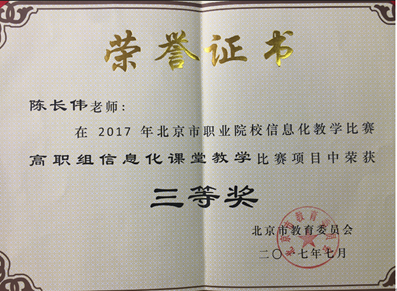 荣誉证书
陈长伟老师：
在 2017 年北京市职业院校信息化教学比赛
高职组信息化课堂教学比赛项目中荣获
三等奖
北京市教育委员会
二〇一七年七月